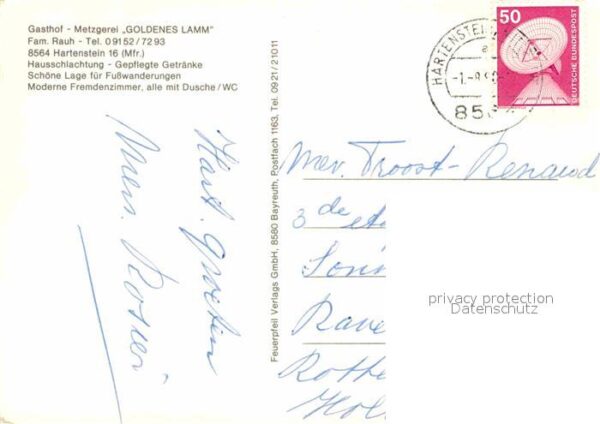 Gasthof - Metzgerei „GOLDENES LAMM"
Fam. Rauh - Tel. 09152/7293
8564 Hartenstein 16 (Mfr.)
Hausschlachtung - Gepflegte Getränke
Schöne Lage für Fußwanderungen
Moderne Fremdenzimmer, alle mit Dusche/WC
Hart. groeten
Mevr.
Feuerpfeil Verlags GmbH, 8580 Bayreuth, Postfach 1163, Tel. 0921/21011
HARTENSTEIN
a
-1.-8.
85
50
DEUTSCHE BUNDESPOST
Mev. Troost-Renaud
3de
Rotte
Hol
privacy protection
Datenschutz